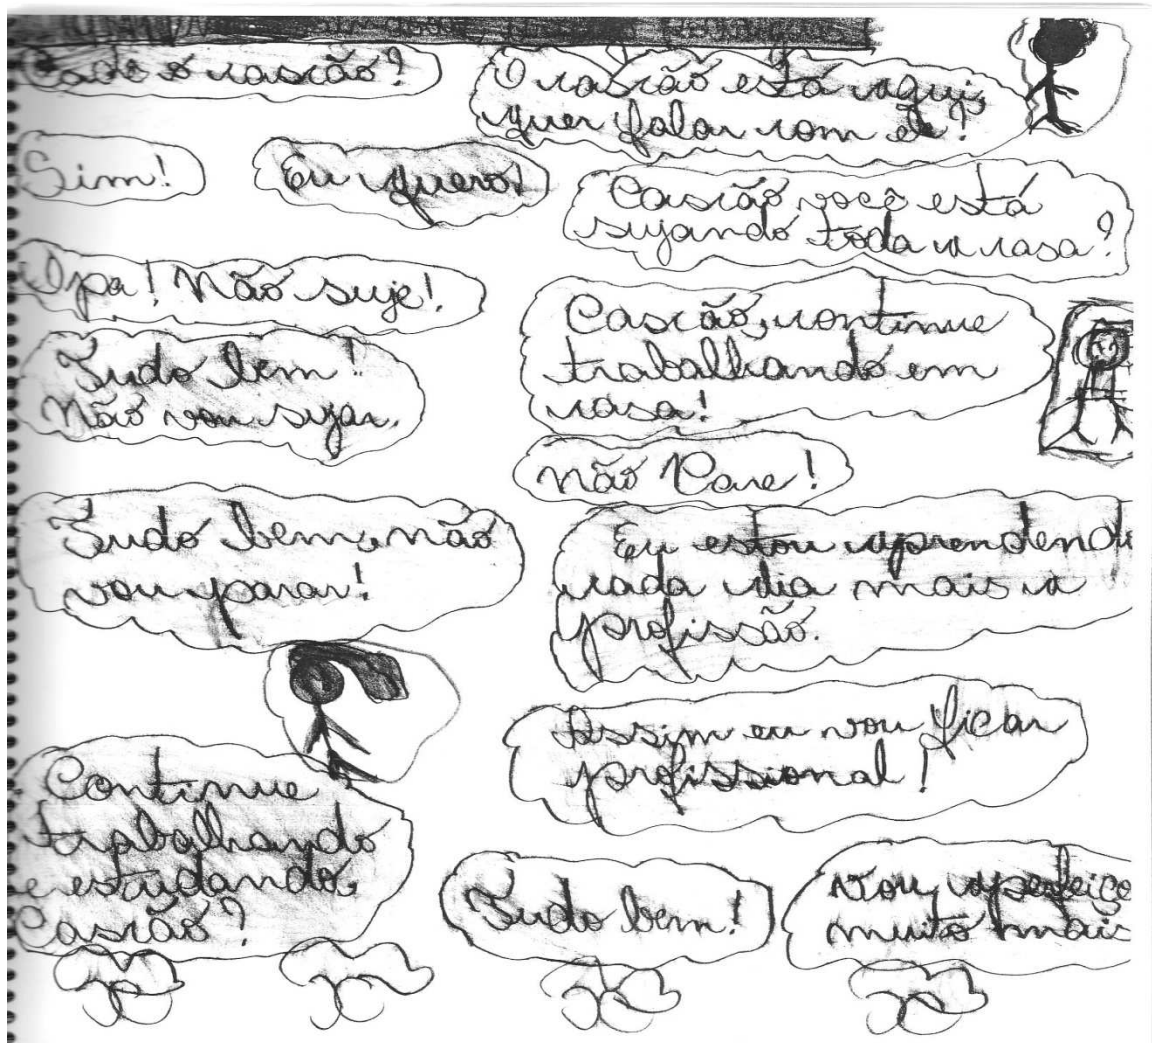 Cadê o cascão?
O cascão está aqui,
quer falar com ele?
Sim!
Eu quero!
Cascão você está
sujando toda a casa?
Opa! Não suje!
Tudo bem!
Não vou sujar.
Cascão, continue
trabalhando em
casa!
Não Pare!
Tudo bem, não
vou parar!
Eu estou aprendend
cada dia mais a
profissão.
Assim eu vou ficar
profissional!
Continue
trabalhando
e estudando,
Cascão?
Tudo bem!
Vou aperfeiço
muito mais